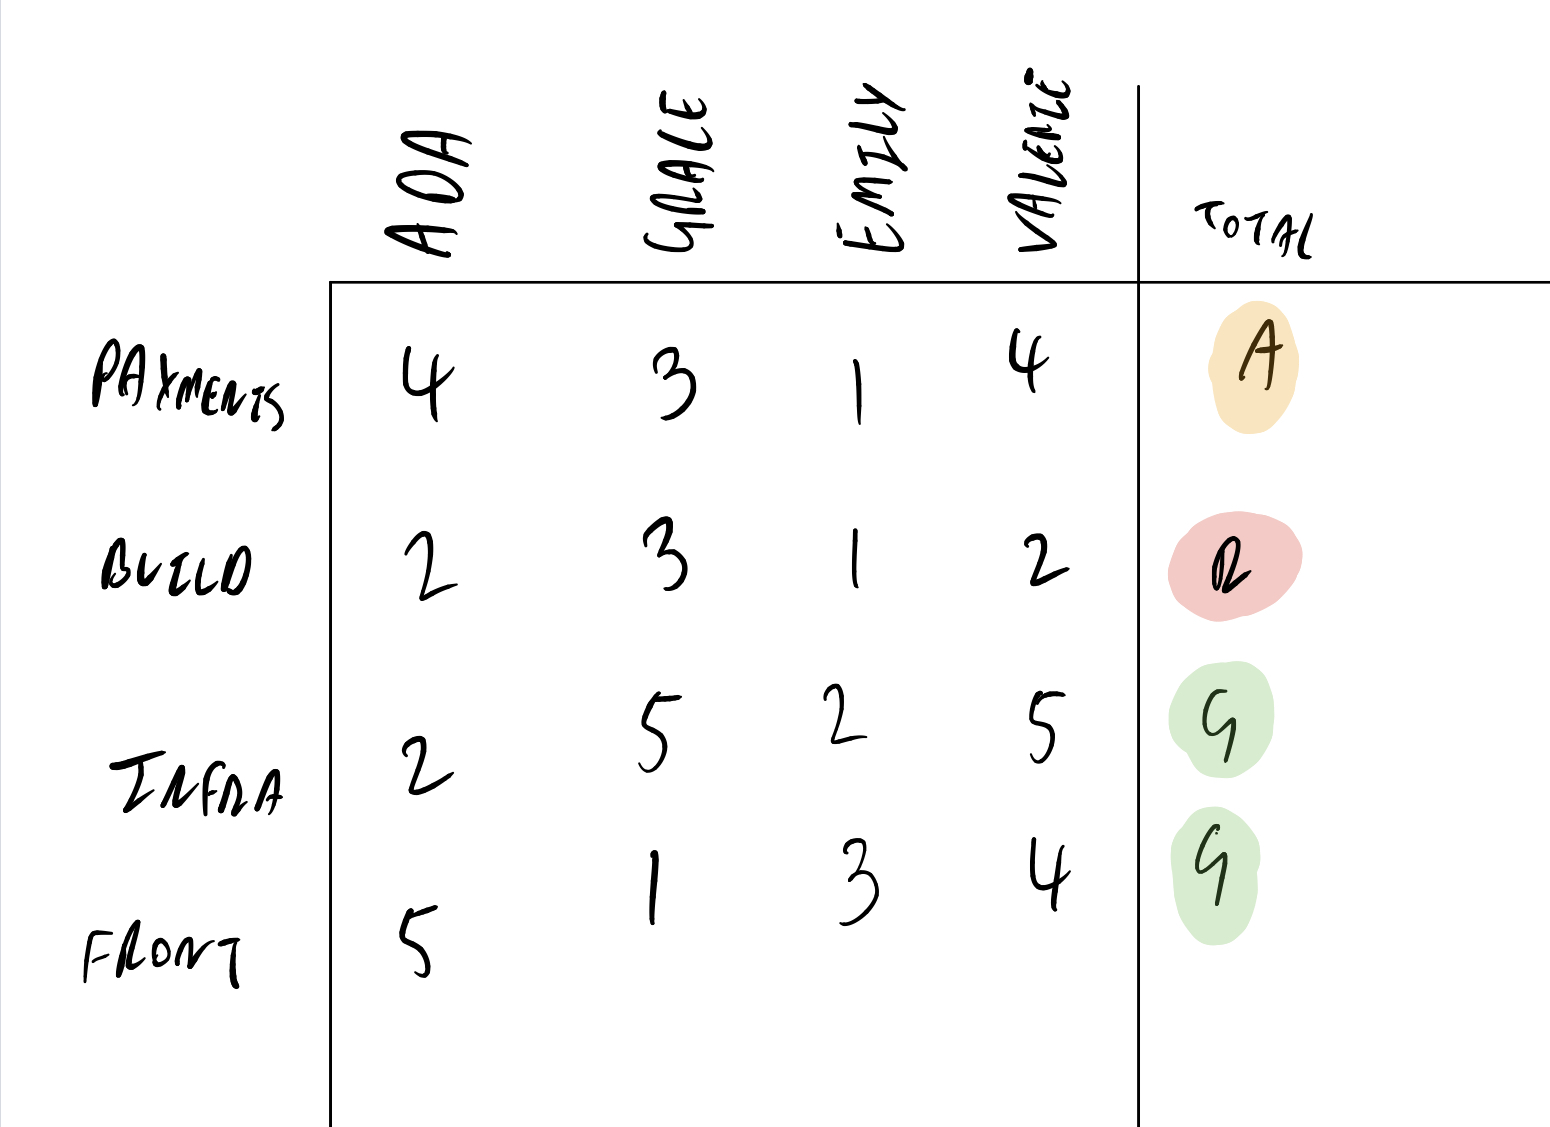 ADA GRACE EMILY VALERIE TOTAL
PAYMENTS 4 3 1 4 A
BUILD 2 3 1 2 R
INFRA 2 5 2 5 G
FRONT 5 1 3 4 G